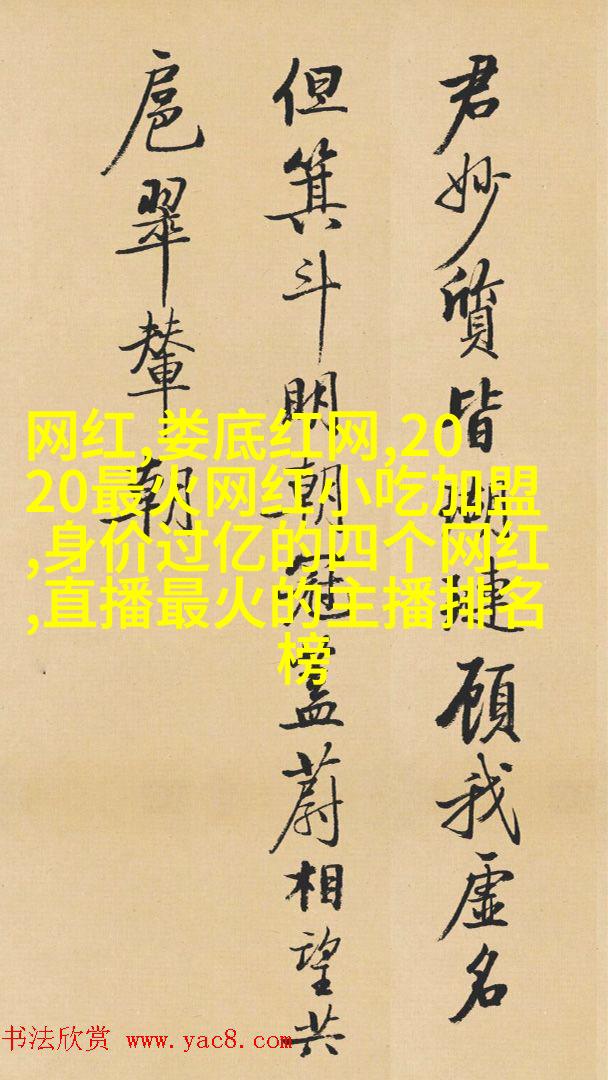 君妙質皆瑚璉顧我虛名
但箕斗明朝冠蓋蔚相望共
扈翠輦朝
网红,娄底红网,20
20最火网红小吃加盟
,身价过亿的四个网红
,直播最火的主播排名
榜
书法欣赏 www.yac8.com